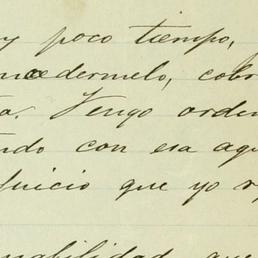 y poco tiempo,
ncedermelo, cobr
ta. Vengo orden
ndo con esa aqu
juicio que yo r
nabilidad que